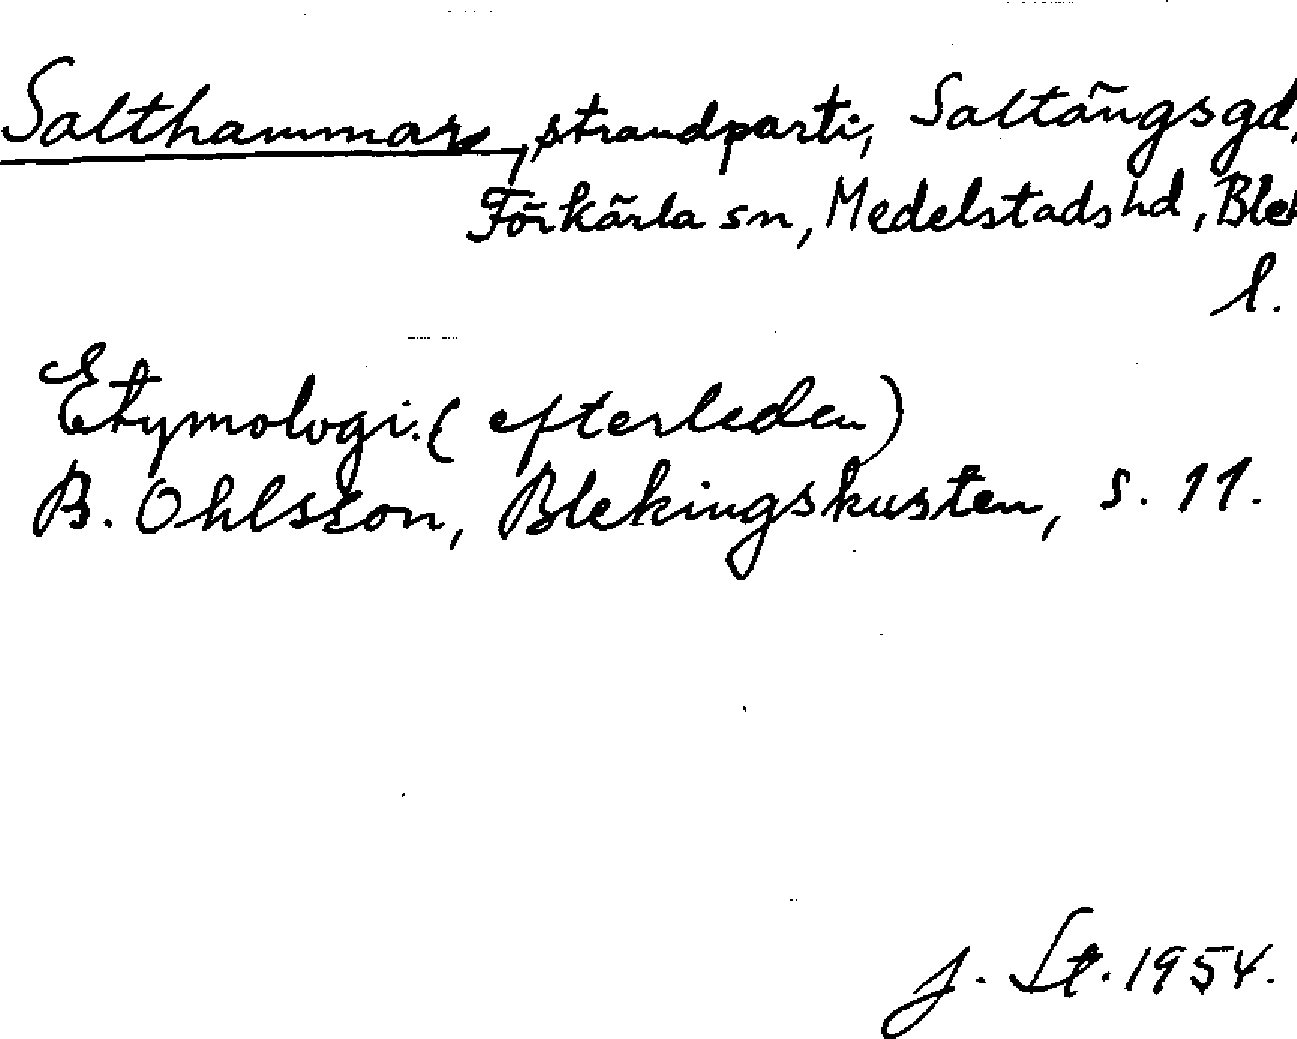 Salthammar, strandparti, Saltängsgd,
Förkärla sn, Medelstads hd, Blek
l.
Etymologi. (efterleden)
B. Ohlsson, Blekingskusten, s. 11.
J. St. 1954.